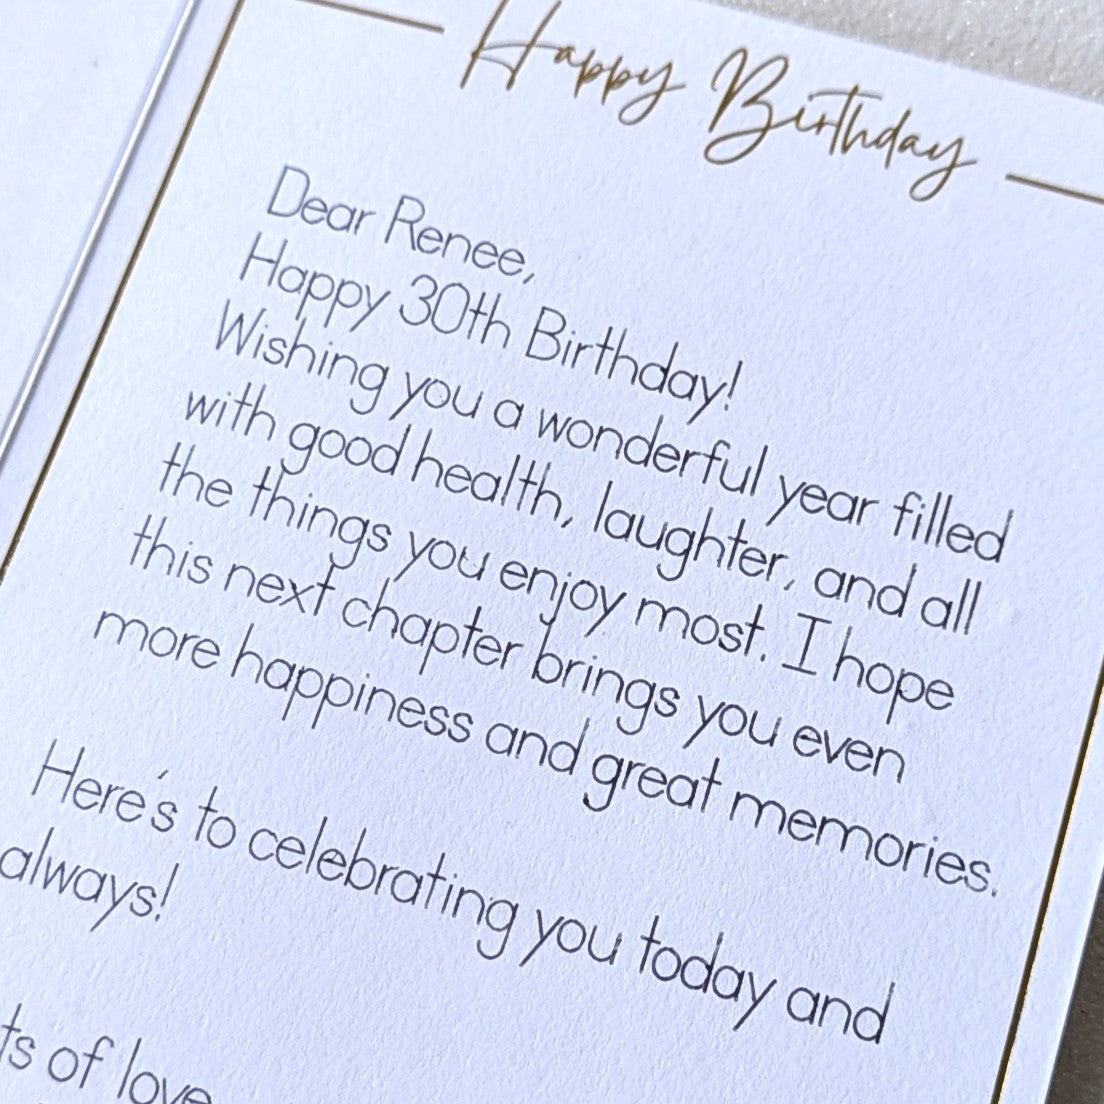 Happy Birthday
Dear Renee,
Happy 30th Birthday!
Wishing you a wonderful year filled
with good health, laughter, and all
the things you enjoy most. I hope
this next chapter brings you even
more happiness and great memories.
Here's to celebrating you today and
always!
of love